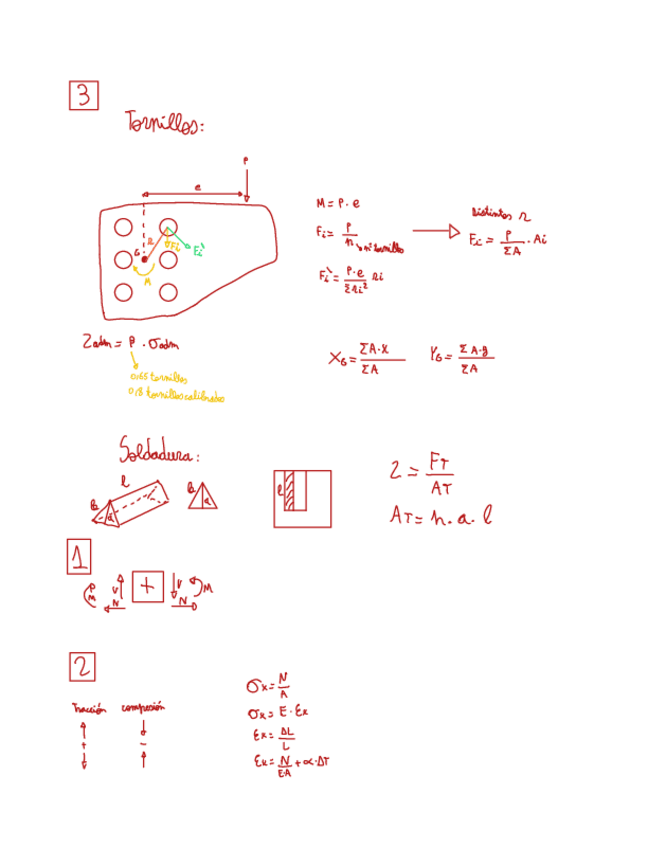 3
Tornillos:
P
e
M = P · e
Fi = P / n
nº tornillos
Distintos r
Fi = P / ΣA · Ai
Fi` = P·e / Σri² ri
G
R
Fi
Fi`
M
τadm = β · σadm
0,65 tornillos
0,8 tornillos calibrado
XG = ΣA·x / ΣA
YG = ΣA·y / ΣA
Soldadura:
l
b
a
b
a
l
τ = FT / AT
AT = n · a · l
1
M
V
N
+
V
N
M
2
Tracción
compresión
+
-
σx = N / A
σx = E · εx
εx = ΔL / L
εx = N / E·A + α·ΔT